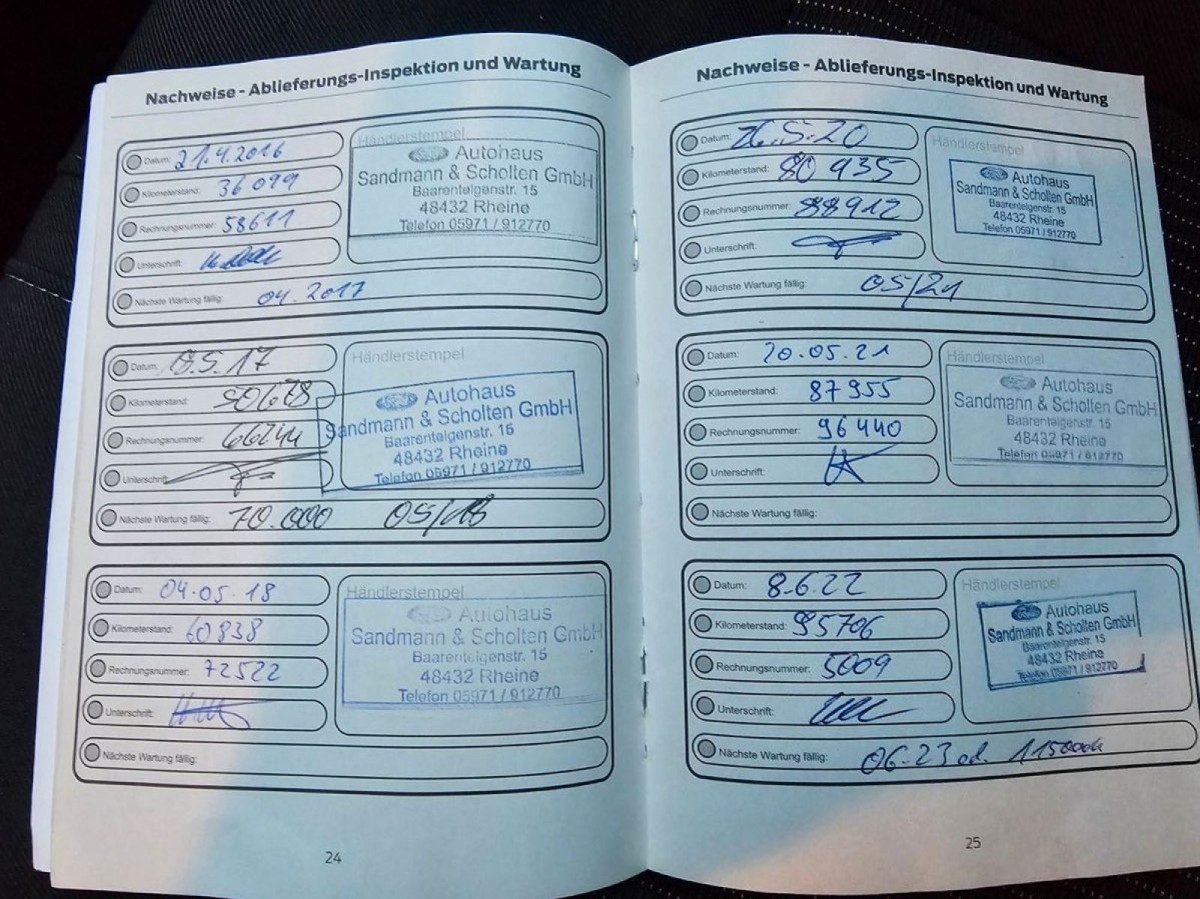 Nachweise - Ablieferungs-Inspektion und Wartung
Datum: 21.4.2016
Kilometerstand: 36099
Rechnungsnummer: 58611
Unterschrift:
Nächste Wartung fällig: 04.2017
Händlerstempel
Autohaus
Sandmann & Scholten GmbH
Baarentelgenstr. 15
48432 Rheine
Telefon 05971 / 912770
Datum: 8.5.17
Kilometerstand: 50678
Rechnungsnummer: 66244
Unterschrift:
Nächste Wartung fällig: 70.000 05/18
Händlerstempel
Autohaus
Sandmann & Scholten GmbH
Baarentelgenstr. 15
48432 Rheine
Telefon 05971 / 912770
Datum: 04.05.18
Kilometerstand: 60838
Rechnungsnummer: 72522
Unterschrift:
Nächste Wartung fällig:
Händlerstempel
Autohaus
Sandmann & Scholten GmbH
Baarentelgenstr. 15
48432 Rheine
Telefon 05971 / 912770
24
Nachweise - Ablieferungs-Inspektion und Wartung
Datum: 26.5.20
Kilometerstand: 80935
Rechnungsnummer: 88912
Unterschrift:
Nächste Wartung fällig: 05/21
Händlerstempel
Autohaus
Sandmann & Scholten GmbH
Baarentelgenstr. 15
48432 Rheine
Telefon 05971 / 912770
Datum: 20.05.21
Kilometerstand: 87955
Rechnungsnummer: 96440
Unterschrift:
Nächste Wartung fällig:
Händlerstempel
Autohaus
Sandmann & Scholten GmbH
Baarentelgenstr. 15
48432 Rheine
Telefon 05971 / 912770
Datum: 8.6.22
Kilometerstand: 95706
Rechnungsnummer: 5009
Unterschrift:
Nächste Wartung fällig: 06.23 od. 115000k
Händlerstempel
Autohaus
Sandmann & Scholten GmbH
Baarentelgenstr. 15
48432 Rheine
Telefon 05971 / 912770
25